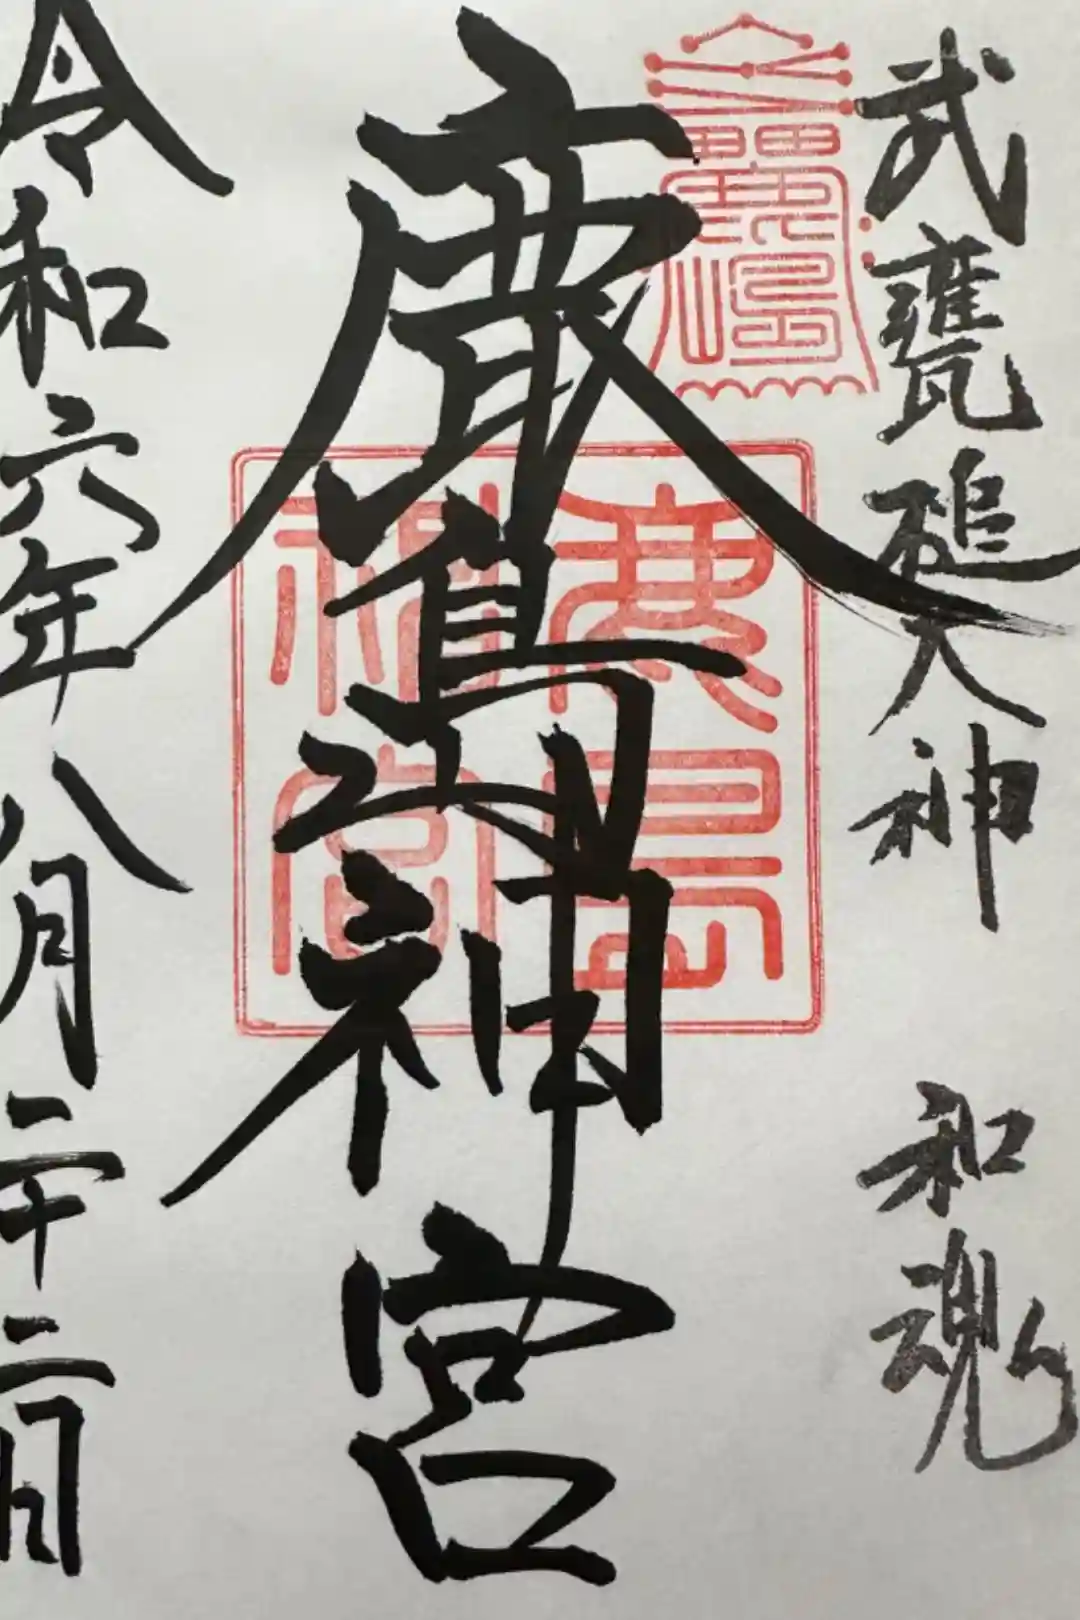 武甕槌大神 和魂
鹿島神宮
鹿島神宮
令和六年八月二十二日